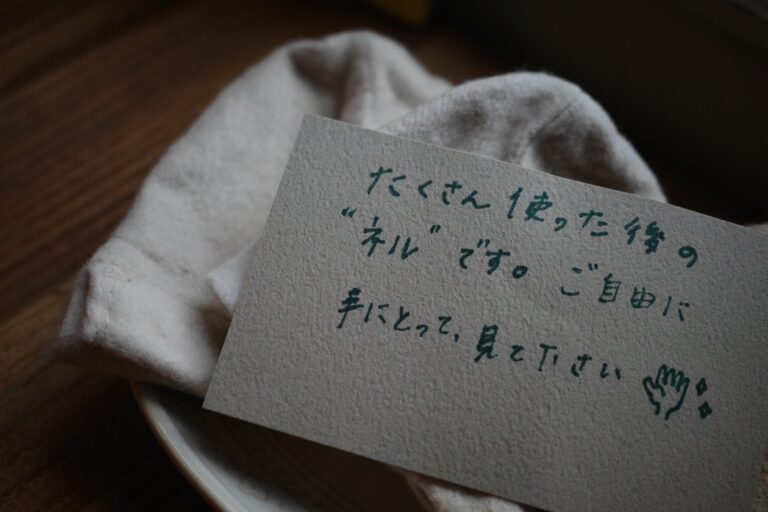 たくさん使った後の
"ネル"です。ご自由に
手にとって、見て下さい